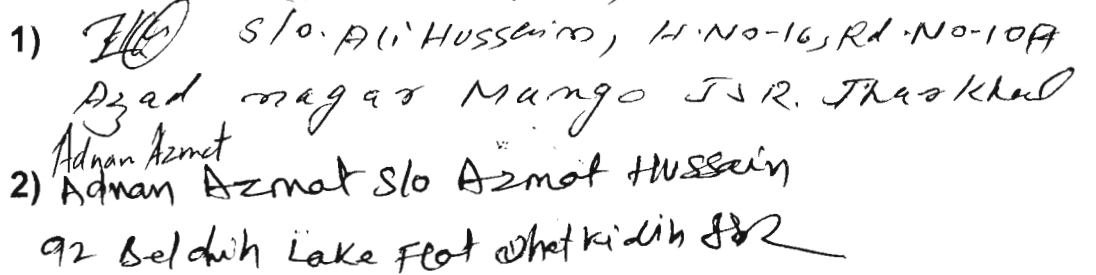 1) S/o. Ali Hussain, H.No-16, Rd.No-10A
Azad nagar Mango JSR. Jharkhand
Adnan Azmat
2) Adnan Azmat S/o Azmat Hussain
92 Beldih Lake Flat Dhatkidih JSR